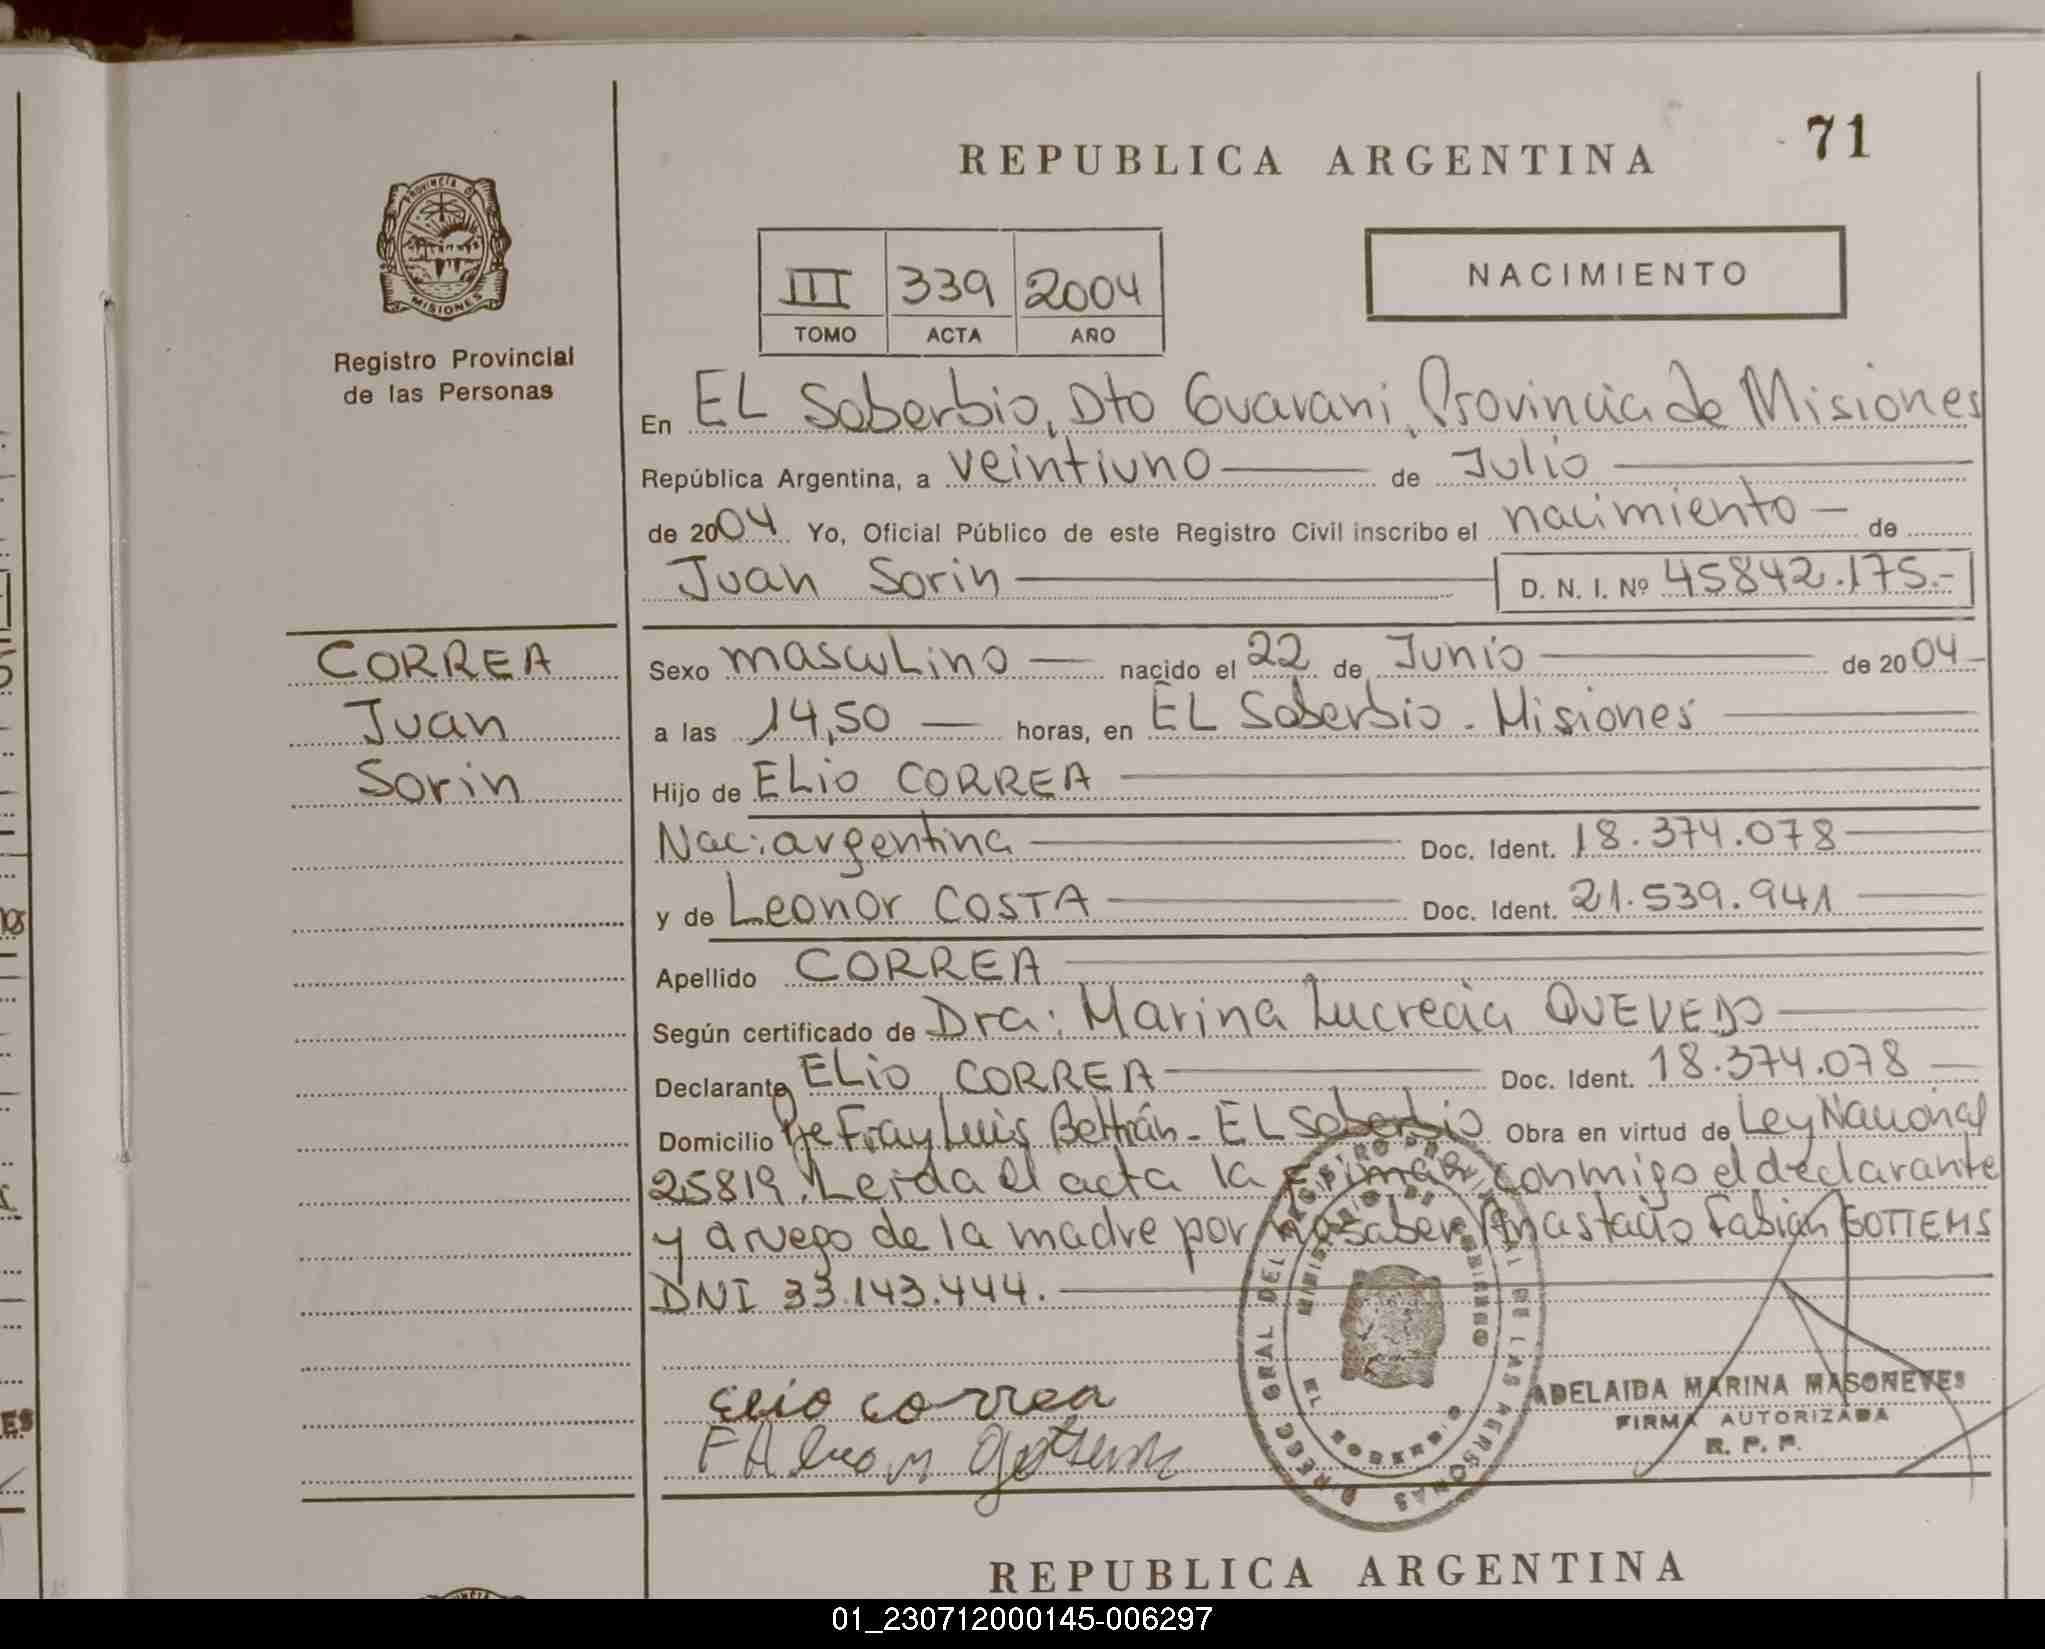 71
REPUBLICA ARGENTINA
PROVINCIA D
MISIONES
Registro Provincial
de las Personas
NACIMIENTO
III 339 2004
TOMO ACTA AÑO
En EL Soberbio, Dto Guarani, Provincia de Misiones
República Argentina, a veintiuno de Julio
de 2004 Yo, Oficial Público de este Registro Civil inscribo el nacimiento de
Juan Sorin D. N. I. Nº 45842.175.-
CORREA
Juan
Sorin
Sexo mascuLino nacido el 22 de Junio de 2004
a las 14,50 horas, en EL Soberbio - Misiones
Hijo de ELio CORREA
Nac: argentina Doc. Ident. 18.374.078
y de Leonor COSTA Doc. Ident. 21.539.941
Apellido CORREA
Según certificado de Dra: Marina Lucrecia QUEVEDO
Declarante ELio CORREA Doc. Ident. 18.374.078
Domicilio Fray Luis Beltrán - EL Soberbio Obra en virtud de Ley Nacional
25819. Leida el acta la firman conmigo el declarante
y a ruego de la madre por no saber Anastacio Fabian GOTTEMS
DNI 33.143.444.
Elio correa
ADELAIDA MARINA MASONEVES
FIRMA AUTORIZADA
R. P. P.
REPUBLICA ARGENTINA
01_230712000145-006297